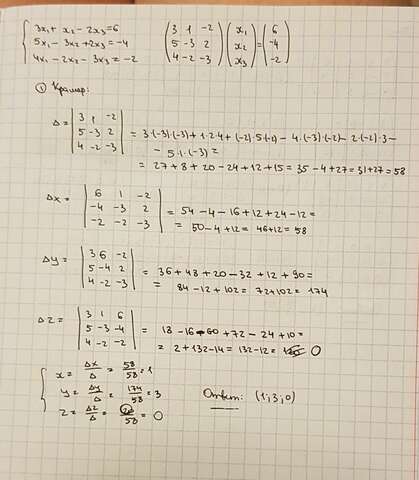 3x₁ + x₂ - 2x₃ = 6
5x₁ - 3x₂ + 2x₃ = -4
4x₁ - 2x₂ - 3x₃ = -2
( 3 1 -2 ) ( x₁ ) ( 6 )
( 5 -3 2 ) ( x₂ ) = ( -4 )
( 4 -2 -3 ) ( x₃ ) ( -2 )
① Крамер:
Δ = | 3 1 -2 |
| 5 -3 2 | = 3·(-3)·(-3) + 1·2·4 + (-2)·5·(-2) - 4·(-3)·(-2) - 2·(-2)·3 -
| 4 -2 -3 | - 5·1·(-3) =
= 27 + 8 + 20 - 24 + 12 + 15 = 35 - 4 + 27 = 31 + 27 = 58
Δx = | 6 1 -2 |
| -4 -3 2 | = 54 - 4 - 16 + 12 + 24 - 12 =
| -2 -2 -3 | = 50 - 4 + 12 = 46 + 12 = 58
Δy = | 3 6 -2 |
| 5 -4 2 | = 36 + 48 + 20 - 32 + 12 + 90 =
| 4 -2 -3 | = 84 - 12 + 102 = 72 + 102 = 174
Δz = | 3 1 6 |
| 5 -3 -4 | = 18 - 16 - 60 + 72 - 24 + 10 =
| 4 -2 -2 | = 2 + 132 - 14 = 132 - 12 = 0
x = Δx/Δ = 58/58 = 1
y = Δy/Δ = 174/58 = 3
z = Δz/Δ = /58 = 0
Ответ: (1; 3; 0)